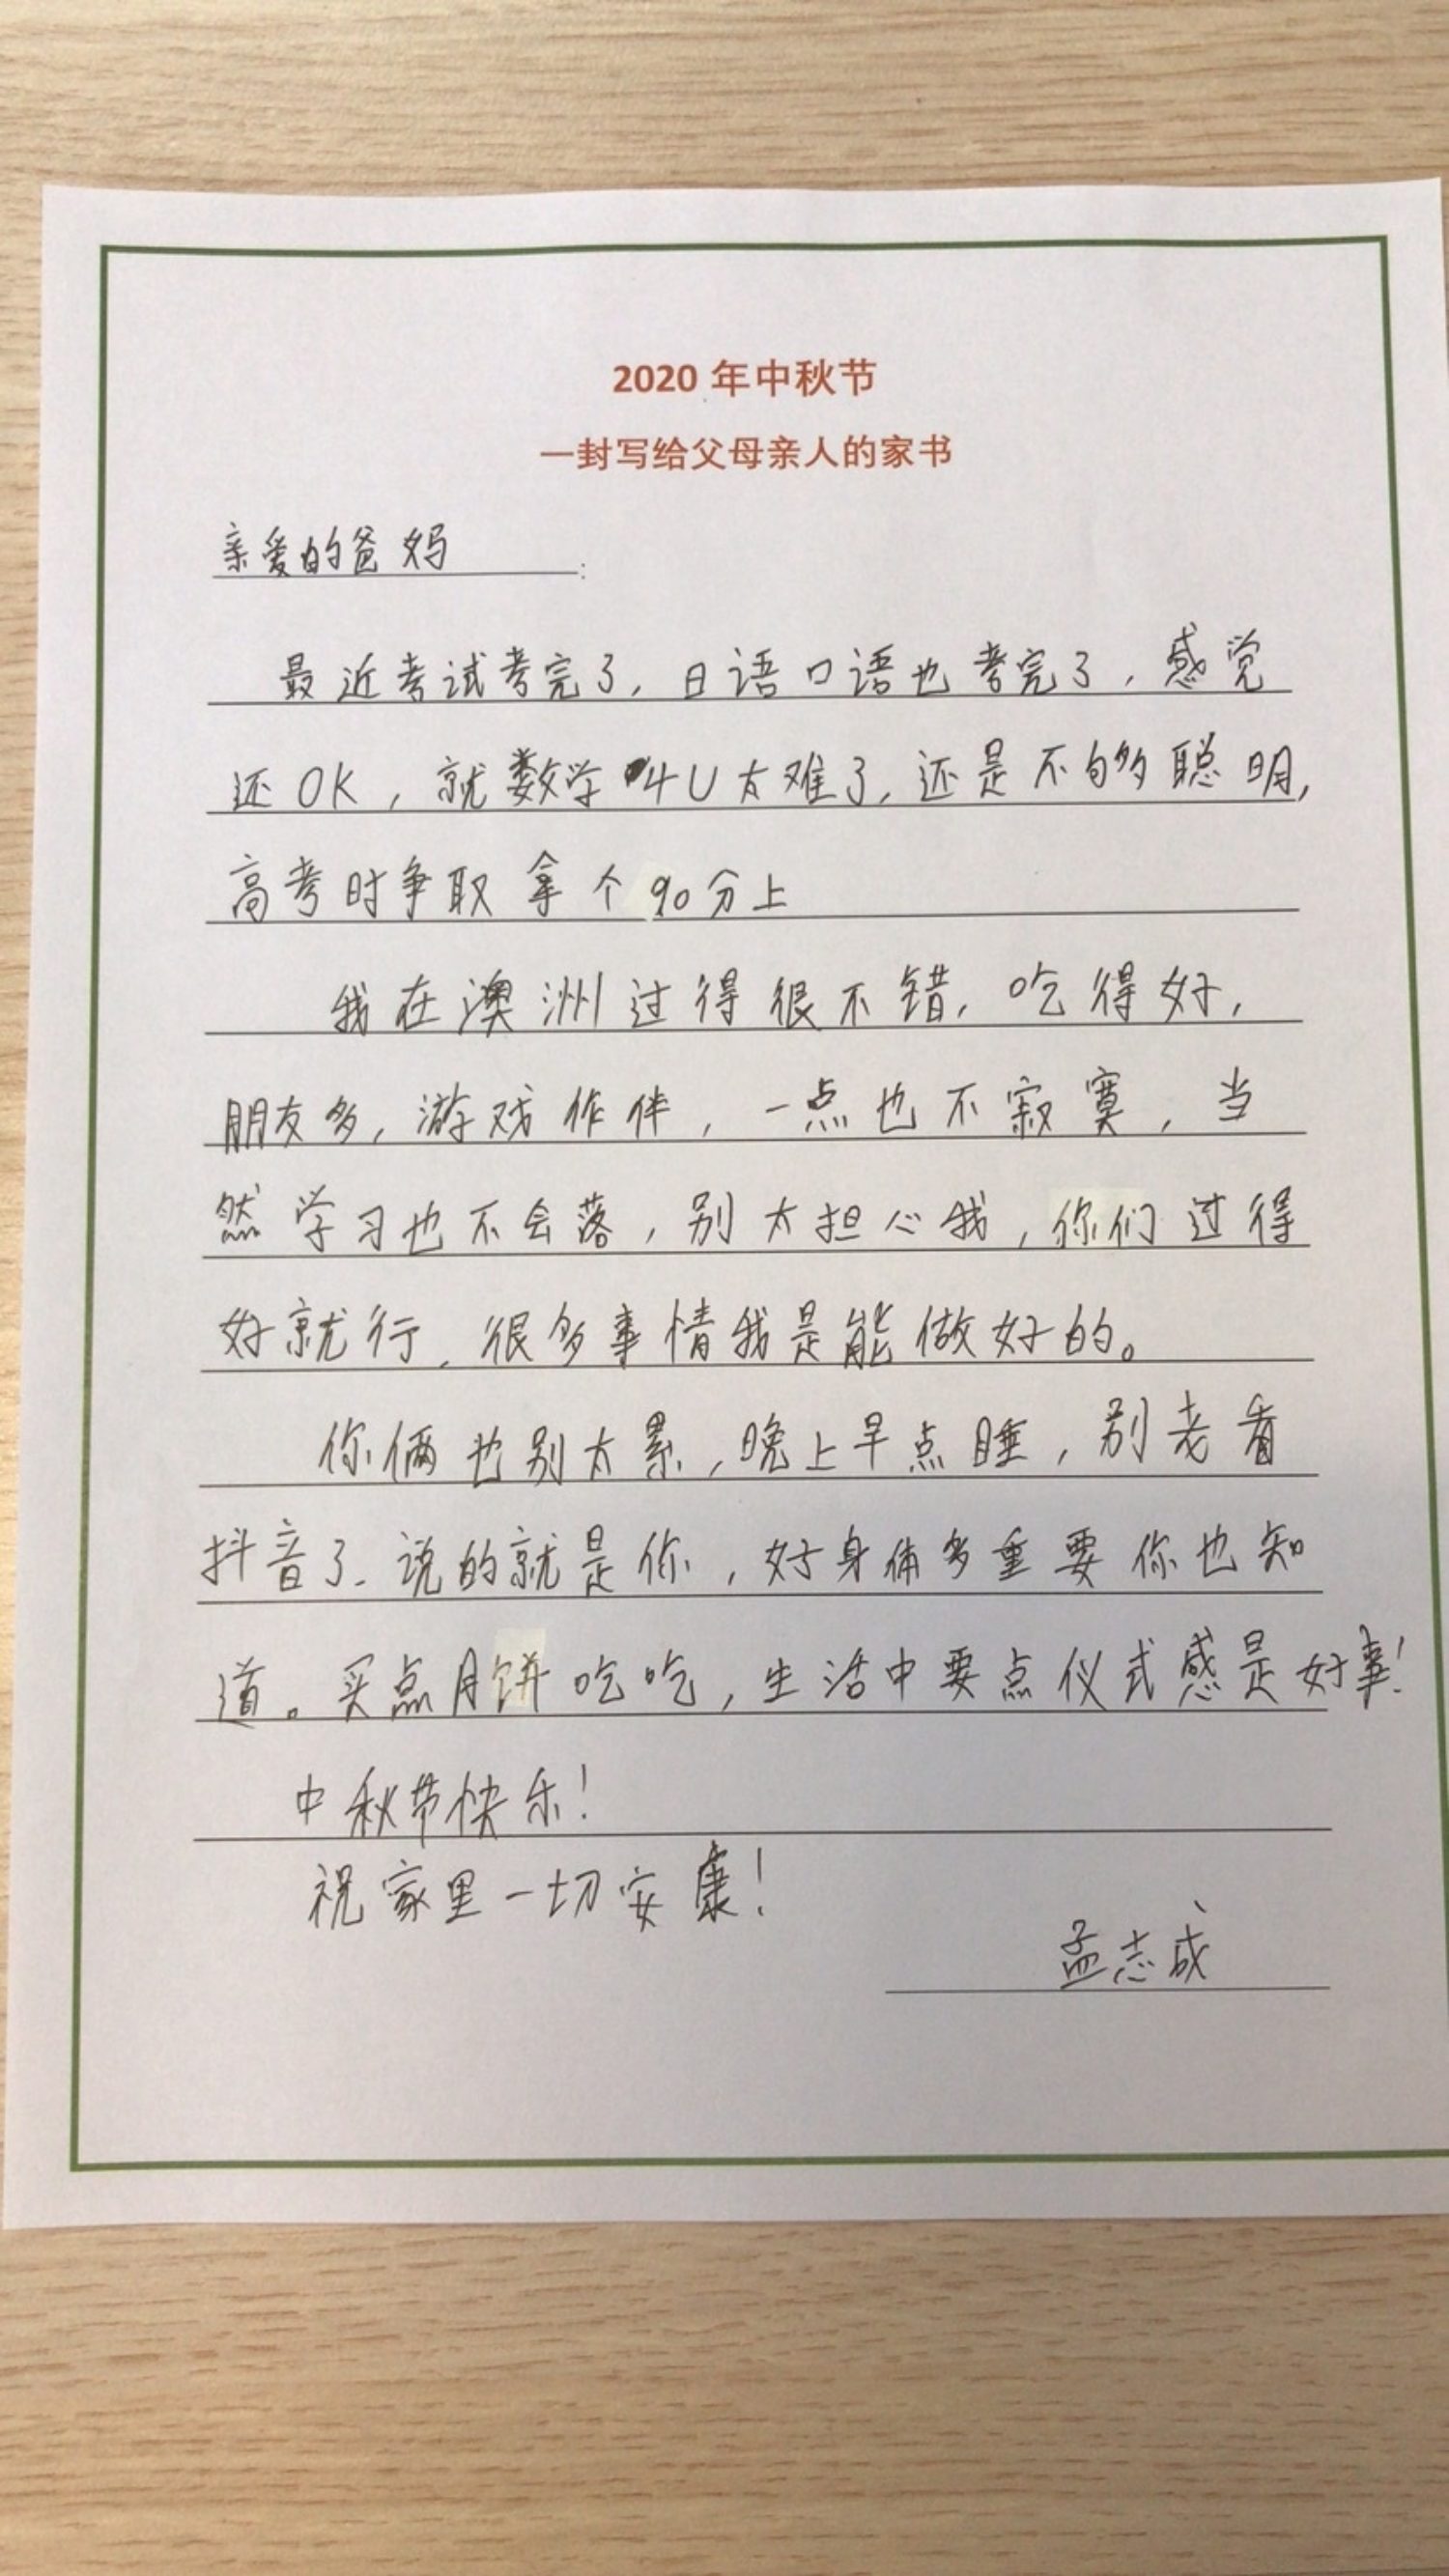 2020 年中秋节
一封写给父母亲人的家书
亲爱的爸妈:
最近考试考完了,日语口语也考完了,感觉
还OK,就数学4U太难了,还是不够聪明,
高考时争取拿个90分上
我在澳洲过得很不错,吃得好,
朋友多,游戏作伴,一点也不寂寞,当
然学习也不会落,别太担心我,你们过得
好就行,很多事情我是能做好的。
你俩也别太累,晚上早点睡,别老看
抖音了、说的就是你,好身体多重要你也知
道。买点月饼吃吃,生活中要点仪式感是好事!
中秋节快乐!
祝家里一切安康!
孟志成